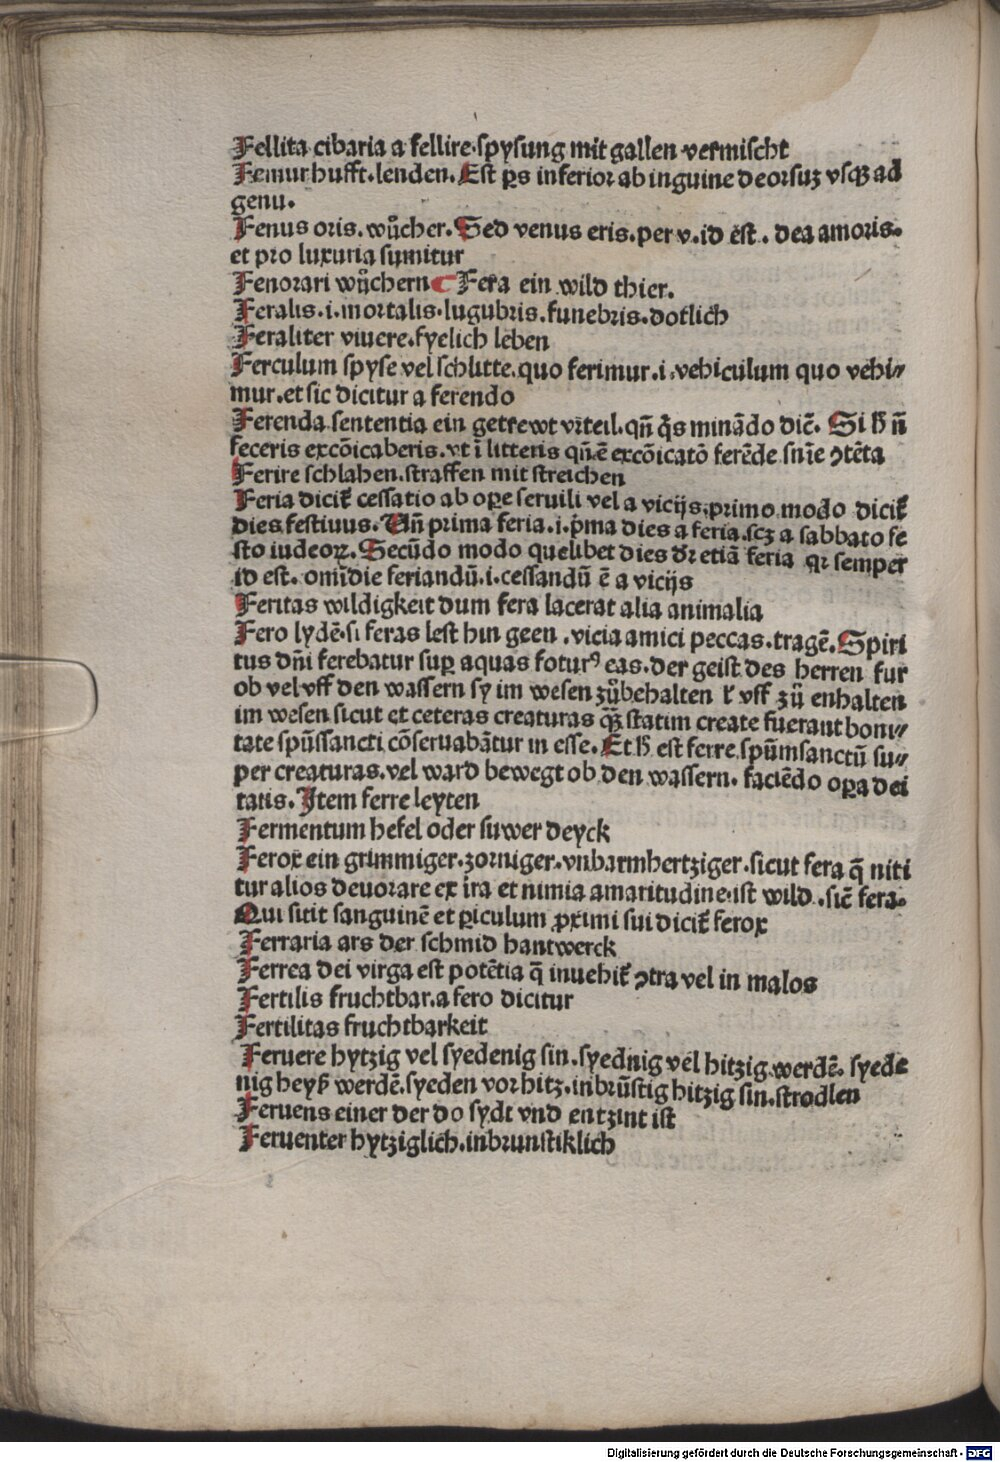 Fellita cibaria a fellire.spysung mit gallen vermischt
Femur hufft.lenden. Est ꝑs inferior ab inguine deorsuꝫ vsqꝫ ad
genu.
Fenus oris. wůcher. Sed venus eris.per v.id est. dea amoris.
et pro luxuria sumitur
Fenorari wůchern ¶ Fera ein wild thier.
Feralis.i.mortalis.lugubris.funebris.dotlich
Feraliter viuere.fyelich leben
Ferculum spyse vel schlitte.quo ferimur.i.vehiculum quo vehi⸗
mur.et sic dicitur a ferendo
Ferenda sententia ein getrewt vrteil.qñ q̃s minãdo dic̃. Si h̄ ñ
feceris excõicaberis.vt ĩ litteris qñ ẽ excõicatõ ferẽde sñie ꝯtẽta
Ferire schlahen.straffen mit streichen
Feria dicit̃ cessatio ab oꝑe seruili vel a vicijs.primo modo dicit̃
dies festiuus. Vñ prima feria.i.pͥma dies a feria.scꝫ a sabbato fe
sto iudeoꝝ. Secũdo modo quelibet dies dr̃ etiã feria qꝛ semper
id est. omĩdie feriandũ.i.cessandũ ẽ a vicijs
Feritas wildigkeit dum fera lacerat alia animalia
Fero lydẽ.si feras lest hin geen .vicia amici peccas.tragẽ. Spiri
tus dñi ferebatur suꝑ aquas foturꝰ eas.der geist des herren fur
ob vel vff den wassern sy im wesen zůbehalten vͤ vff zů enhalten
im wesen sicut et ceteras creaturas qq̃ꝫ statim create fuerant boni⸗
tate spũssancti cõseruabãtur in esse. Et h̄ est ferre spũmsanctũ su⸗
per creaturas.vel ward bewegt ob den wassern. faciẽdo oꝑa dei
tatis. Item ferre leyten
Fermentum hefel oder suwer deyck
Ferox ein grimmiger.zorniger.vnbarmhertziger.sicut fera q̃ niti
tur alios deuorare ex ira et nimia amaritudine.ist wild .sic̃ fera.
Qui sitit sanguinẽ et ꝑiculum ꝓximi sui dicit̃ ferox
Ferraria ars der schmid hantwerck
Ferrea dei virga est potẽtia q̃ inuehit̃ ꝯtra vel in malos
Fertilis fruchtbar.a fero dicitur
Fertilitas fruchtbarkeit
Feruere hytzig vel syedenig sin.syednig vel hitzig werdẽ. syede
nig heyß werdẽ.syeden vor hitz.inbrũstig hitzig sin.strodlen
Feruens einer der do sydt vnd entzint ist
Feruenter hytziglich.inbrunstiklich
Digitalisierung gefördert durch die Deutsche Forschungsgemeinschaft - DFG